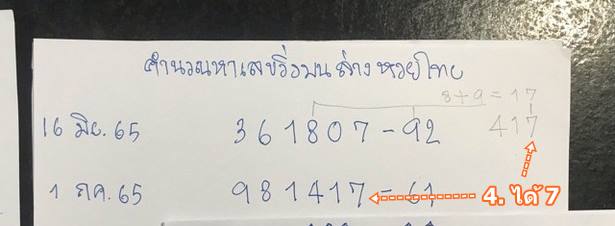 คำนวณหาเลขวิ่งบนล่าง หวยไทย
8+9=17
16 มิย. 65 361807-92 417
1 กค. 65 981417=61 4. ได้ 7